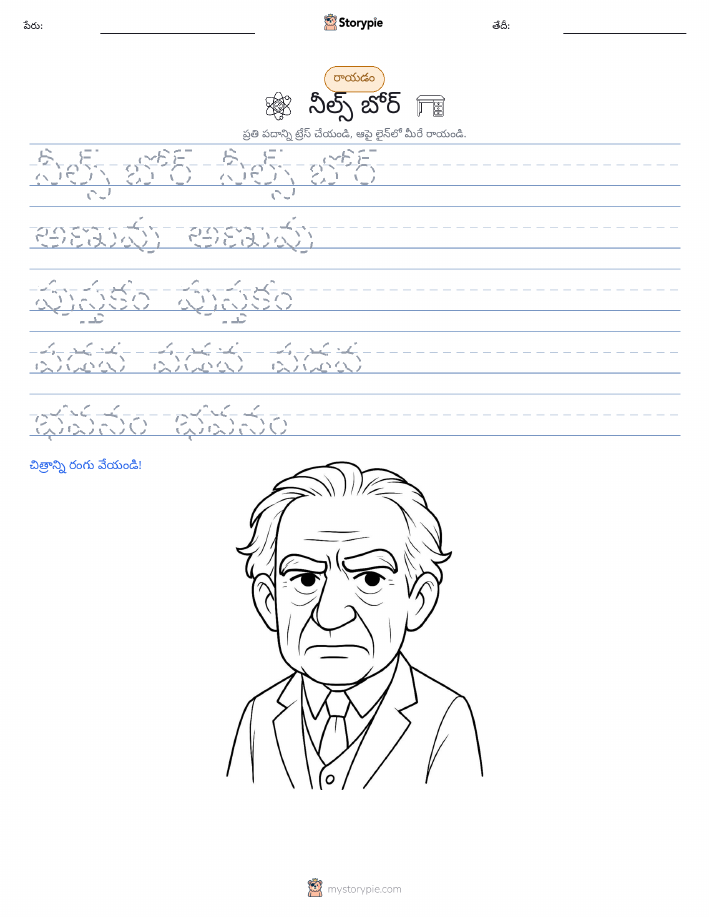 పేరు:
Storypie
తేదీ:
రాయడం
నీల్స్ బోర్
ప్రతి పదాన్ని ట్రేస్ చేయండి, ఆపై లైన్‌లో మీరే రాయండి.
నీల్స్ బోర్ నీల్స్ బోర్
అణువు అణువు
పుస్తకం పుస్తకం
పడవ పడవ పడవ
భవనం భవనం
చిత్రాన్ని రంగు వేయండి!
mystorypie.com